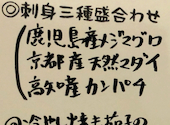 ◎刺身三種盛合わせ
鹿児島産メジマグロ
京都産天然マダイ
高知産カンパチ
◎冷やし焼き茄子の